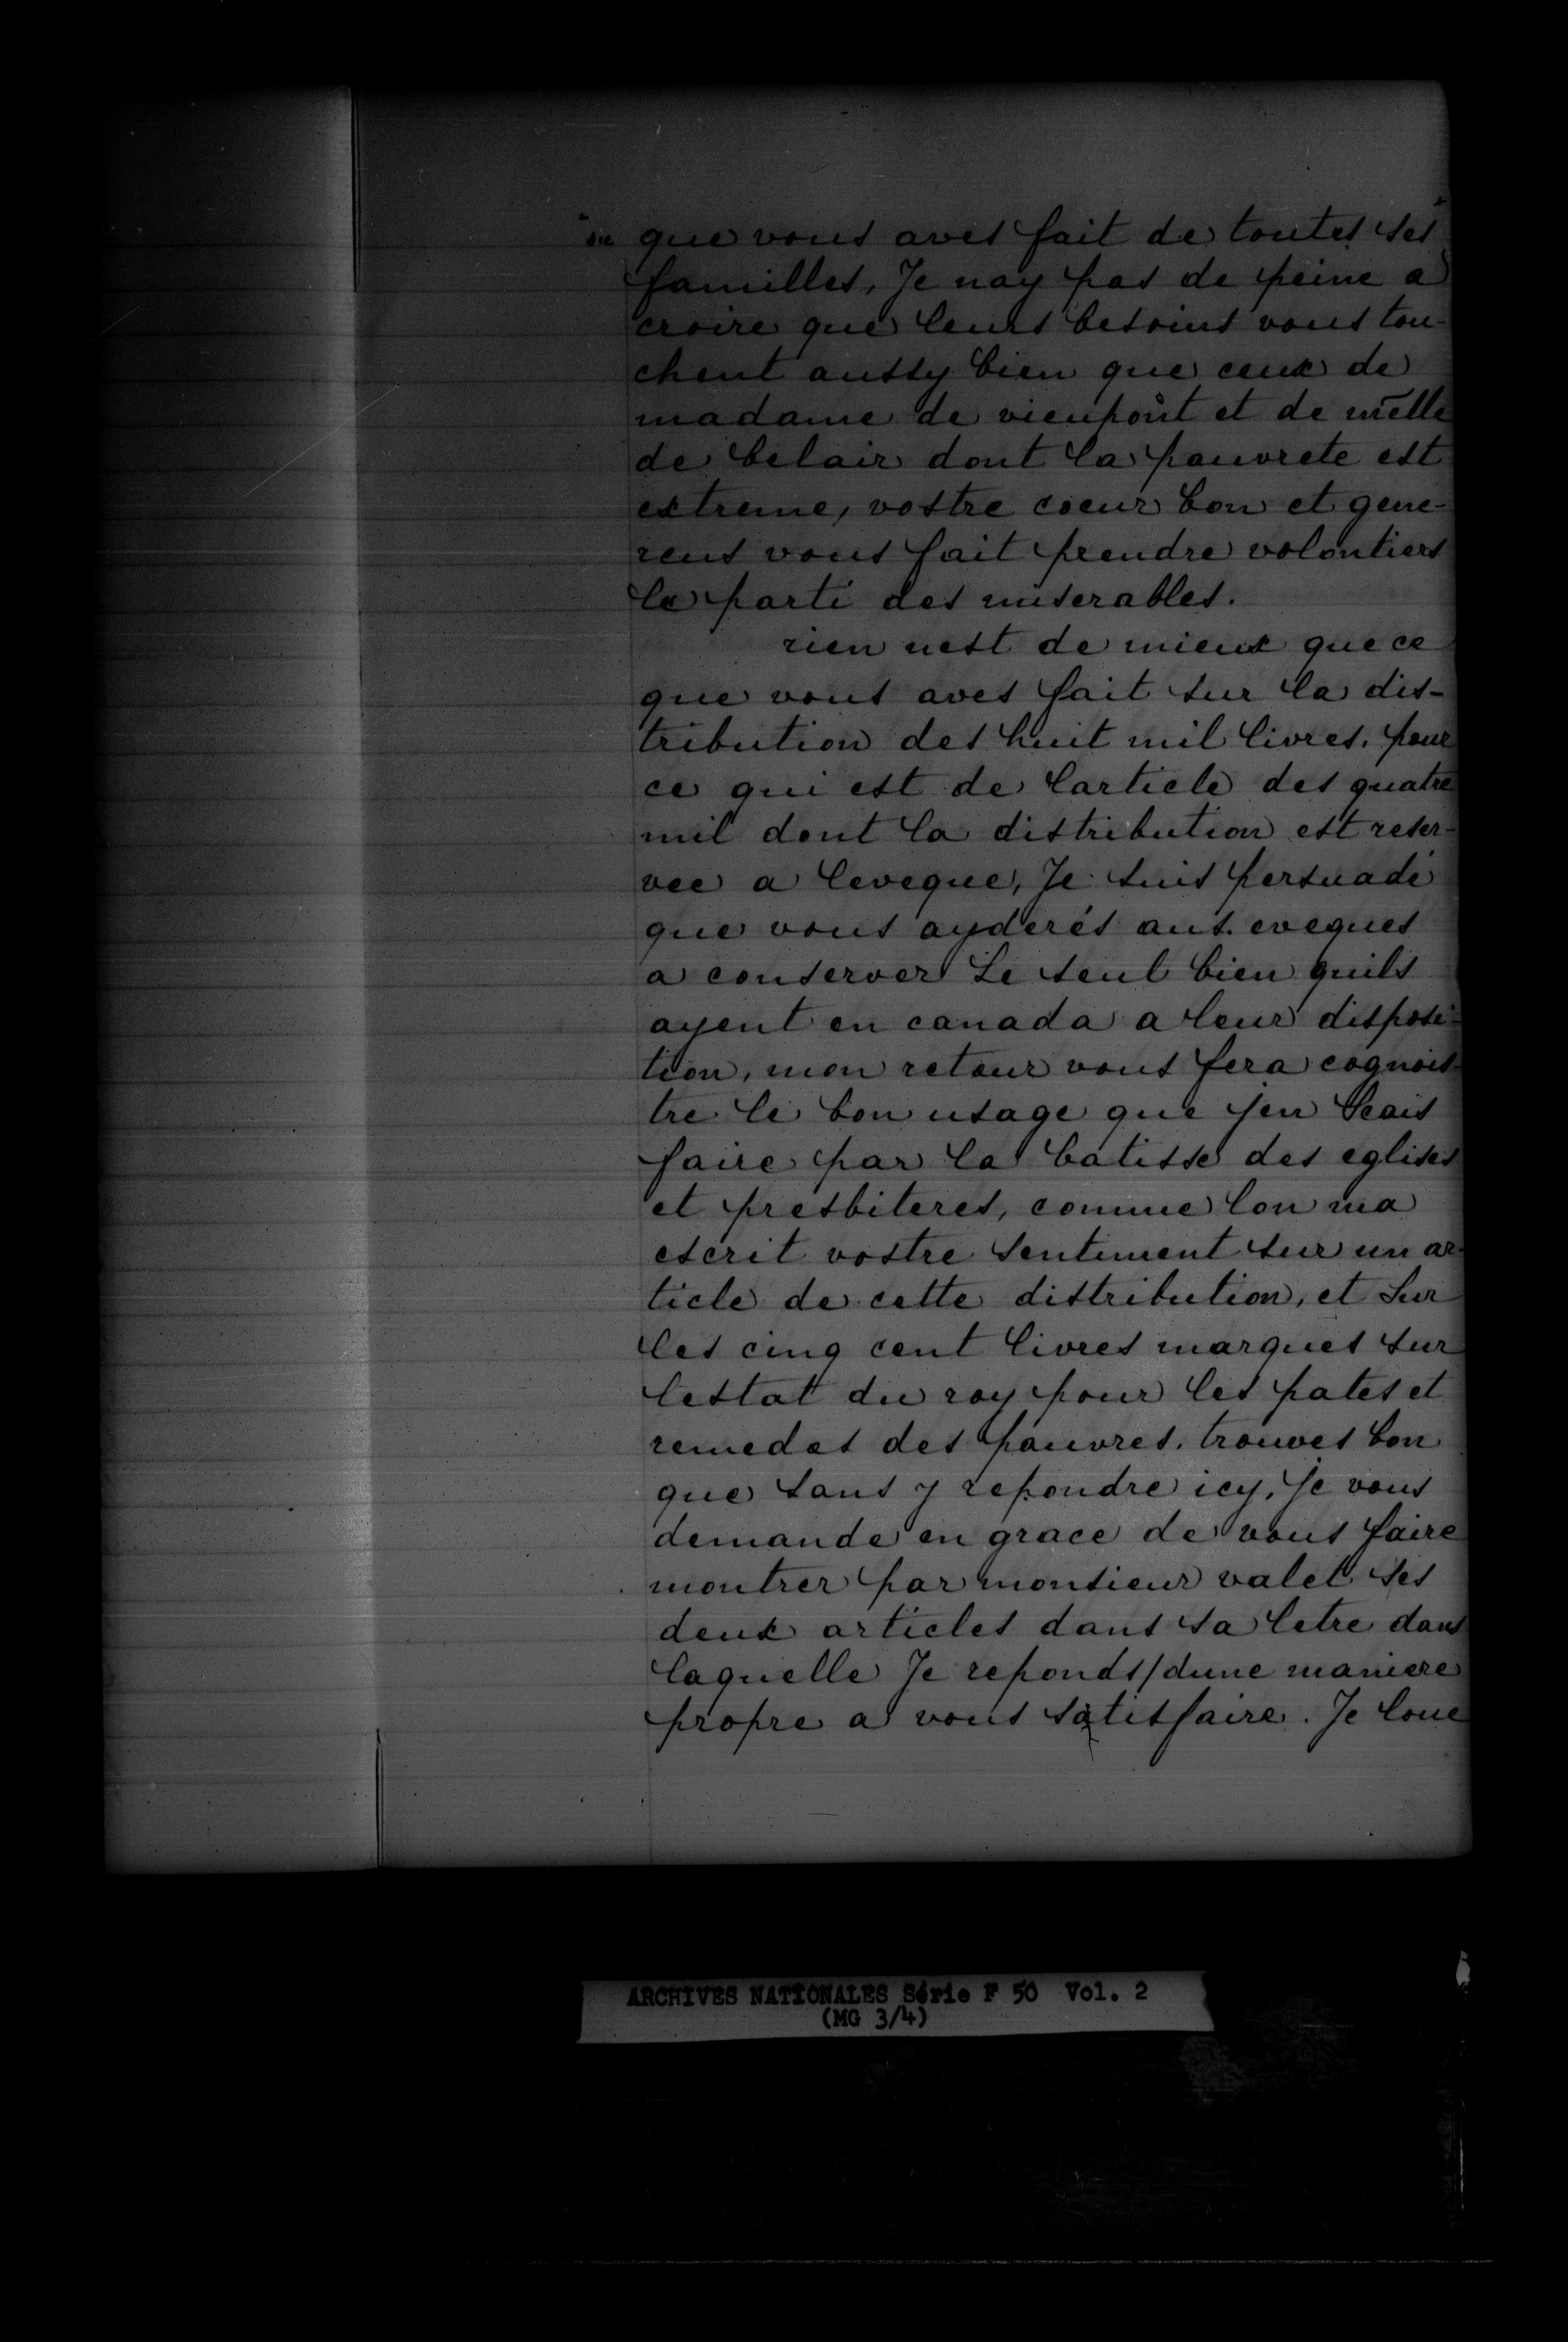 "sic que vous aves fait de toutes ses"
familles, Je nay pas de peine a
croire que leurs besoins vous tou-
chent aussy bien que ceux de
madame de vieupont et de melle
de belair dont la pauvrete est
extreme, vostre coeur bon et gene-
reus vous fait prendre volontiers
le parti des miserables.
rien nest de mieux que ce
que vous aves fait sur la dis-
tribution des huit mil livres. pour
ce qui est de larticle des quatre
mil dont la distribution est reser-
vee a leveque, Je suis persuadé
que vous ayderés aus. eveques
a conserver Le seul bien quils
ayent en canada a leur disposi-
tion, mon retour vous fera cognois-
tre le bon usage que jen scais
faire par la batisse des eglises
et presbiteres, comme lon ma
escrit vostre sentiment sur un ar-
ticle de cette distribution, et sur
les cinq cent livres marques sur
lestat du roy pour les pates et
remedes des pauvres. trouves bon
que sans y repondre icy, je vous
demande en grace de vous faire
montrer par monsieur valet ses
deux articles dans sa letre dans
laquelle Je reponds/dune maniere
propre a vous satisfaire. Je loue
ARCHIVES NATIONALES Série F 50 Vol. 2
(MG 3/4)